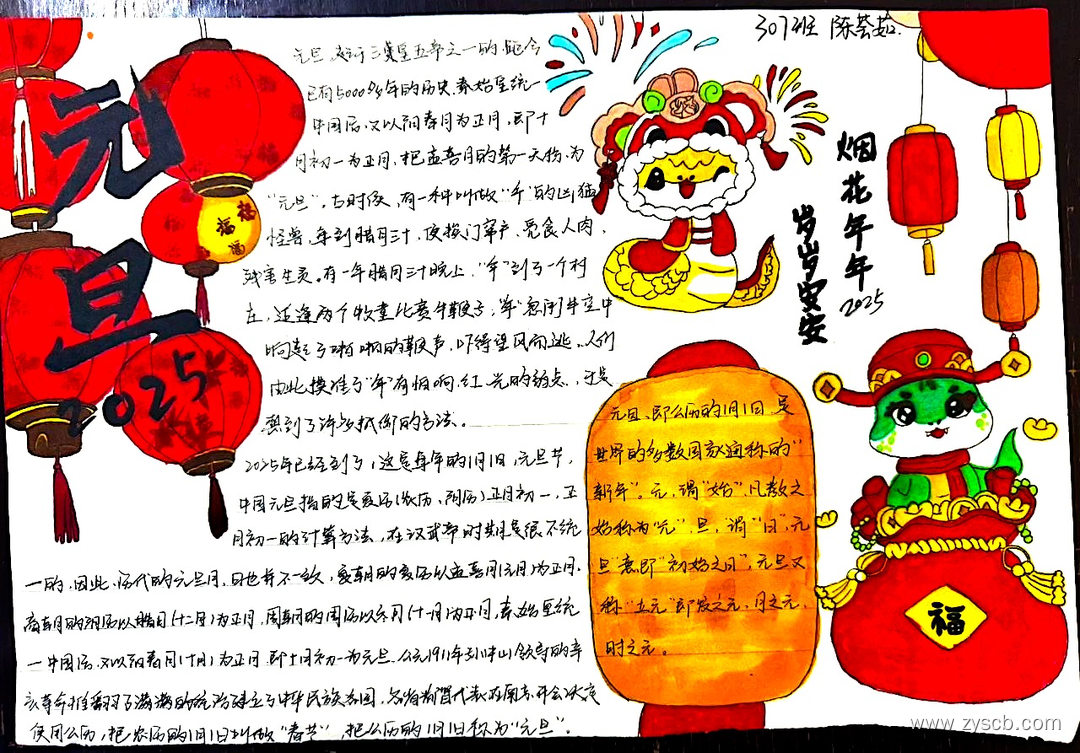 307班 陈荟茹
元旦
2025
元旦,起于三皇五帝之一的
已有5000多年的历史,秦始皇统一
中国后,又以阳春月为正月,即十
月初一为正月,把孟喜月的第一天称为
“元旦”。古时候,有一种叫做“年”的凶猛
怪兽,每到腊月三十,便挨门窜户,觅食人肉,
残害生灵。有一年腊月三十晚上,“年”到了一个村
庄,适逢两个牧童比赛牛鞭子,“年”忽闻半空中
响起了啪啪的鞭声,吓得望风而逃。人们
由此摸准了“年”有怕响,红,光的弱点,于是
想到了许多抵御的方法。
2025年已经到了,这是每年的1月1日,元旦节,
中国元旦指的是夏历(农历,阴历)正月初一,正
月初一的计算方法,在汉武帝时期是很不统
一的,因此,历代的元旦月,日也并不一致,夏朝的夏历以孟喜月(元月)为正月,
商朝的殷历以腊月(十二月)为正月,周朝的周历以冬月(十一月)为正月,秦始皇统
一中国后,又以阳春月(十月)为正月,即十月初一为元旦。公元1911年孙中山领导的辛
亥革命推翻了满清的统治建立了中华民国,各省都督代表在南京开会决定
使用公历,把农历的1月1日叫做“春节”,把公历的1月1日称为“元旦”。
烟花年年
岁岁安安
2025
元旦,即公历的1月1日,是
世界的多数国家通称的“
新年”。元,谓“始”,凡数之
始称为“元”,旦,谓“日”,元
旦“意即”初始之日”,元旦又
称“三元”即岁之元,月之元,
时之元。
福
福
福
福
www.zyscb.com